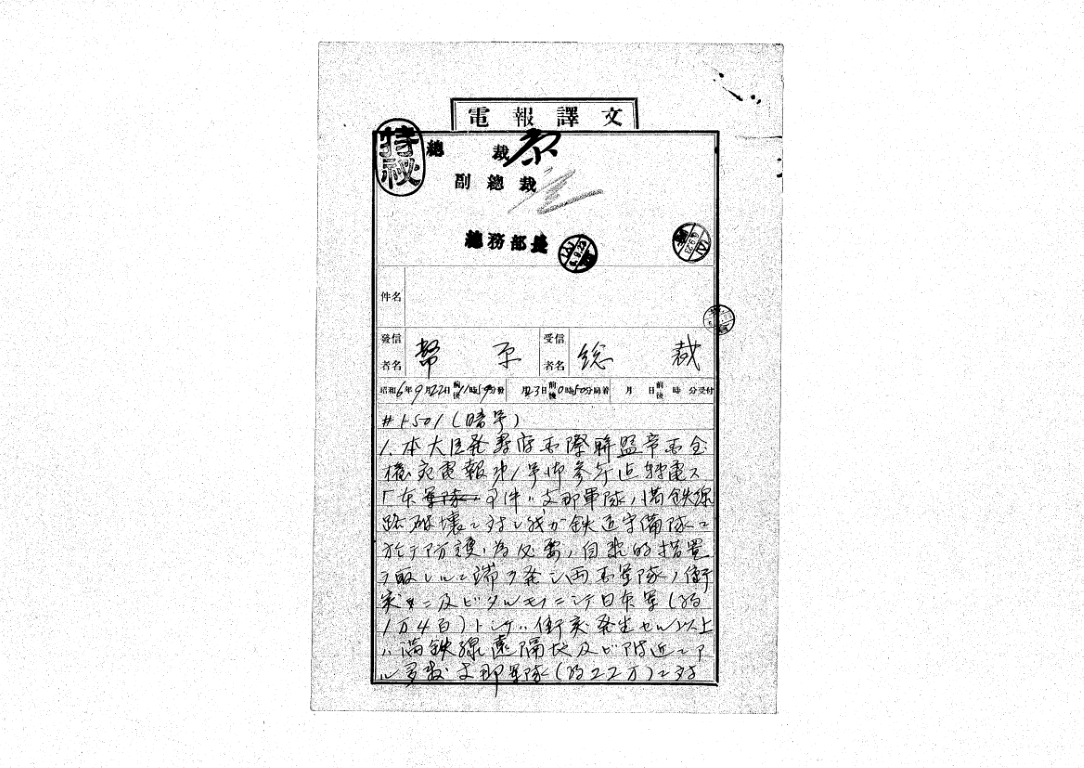 電報譯文
特秘
總裁
副總裁
總務部長
件名
發信者名 幣原
受信者名 総裁
昭和6年9月22日前後11時59分發 月23日前後0時50分局着 月 日前後時 分受付
(暗号)
1、本大臣発寿府国際聯盟帝国全
権宛電報第1号御参考迄轉電ス
「本事件ハ支那軍隊ノ満鉄線
路破壊ニ対シ我ガ鉄道守備隊ニ
於テ防護ノ為必要ノ自衛的措置
ヲ取レルニ端ヲ発シ両国軍隊ノ衝
突ニ及ビタルモノニシテ日本軍(約
1万4百)トシテハ衝突発生セル以上
ハ満鉄線遠隔地及ビ附近ニア
ル多数支那軍隊(約22万)ニ対